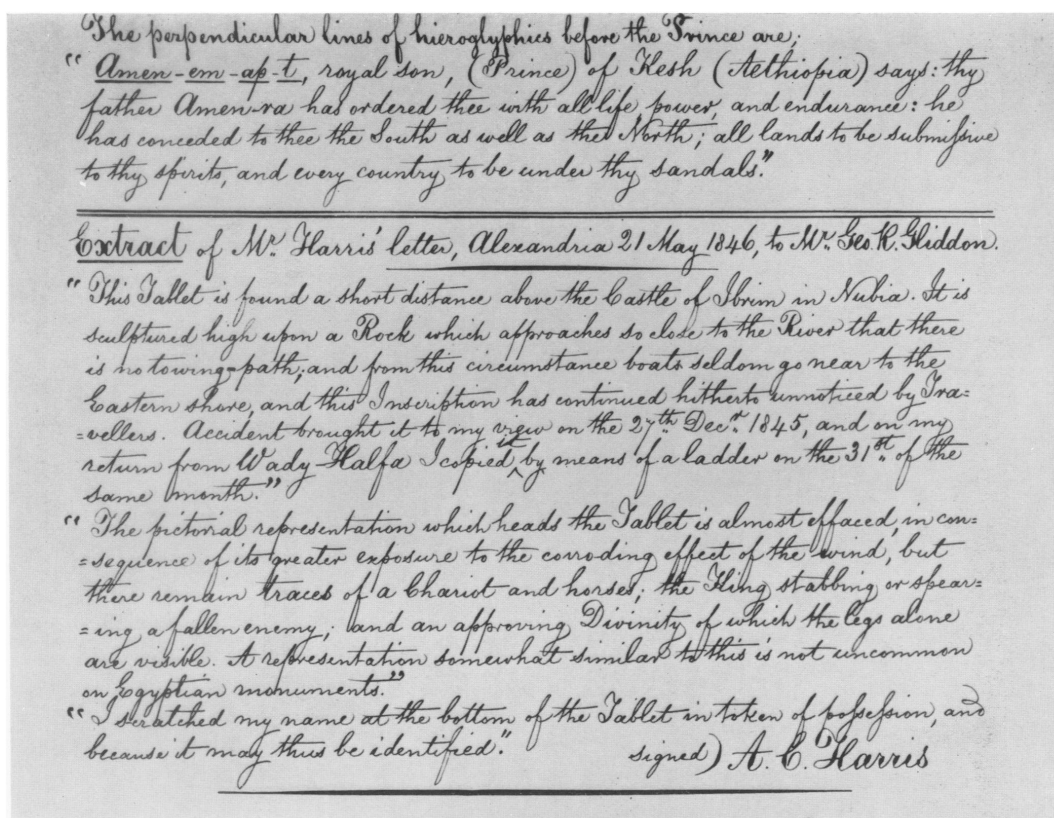 The perpendicular lines of hieroglyphics before the Prince are;
"Amen-em-ap-t, royal son, (Prince) of Kesh (Aethiopia) says: thy
father Amen-ra has ordered thee with all life, power, and endurance: he
has conceded to thee the South as well as the North; all lands to be submissive
to thy spirits, and every country to be under thy sandals."
Extract of Mr. Harris' letter, Alexandria 21 May 1846, to Mr. Geo. R. Gliddon.
"This Tablet is found a short distance above the Castle of Ibrim in Nubia. It is
sculptured high upon a Rock which approaches so close to the River that there
is no towing-path; and from this circumstance boats seldom go near to the
Eastern shore, and this Inscription has continued hitherto unnoticed by Tra=
=vellers. Accident brought it to my view on the 27th Decr. 1845, and on my
return from Wady-Halfa I copied it by means of a ladder on the 31st of the
same month."
"The pictorial representation which heads the Tablet is almost effaced, in con=
=sequence of its greater exposure to the corroding effect of the wind, but
there remain traces of a Chariot and horses; the King stabbing or spear=
=ing a fallen enemy; and an approving Divinity of which the legs alone
are visible. A representation somewhat similar to this is not uncommon
on Egyptian monuments."
"I scratched my name at the bottom of the Tablet in token of possession, and
because it may thus be identified". signed) A. C. Harris